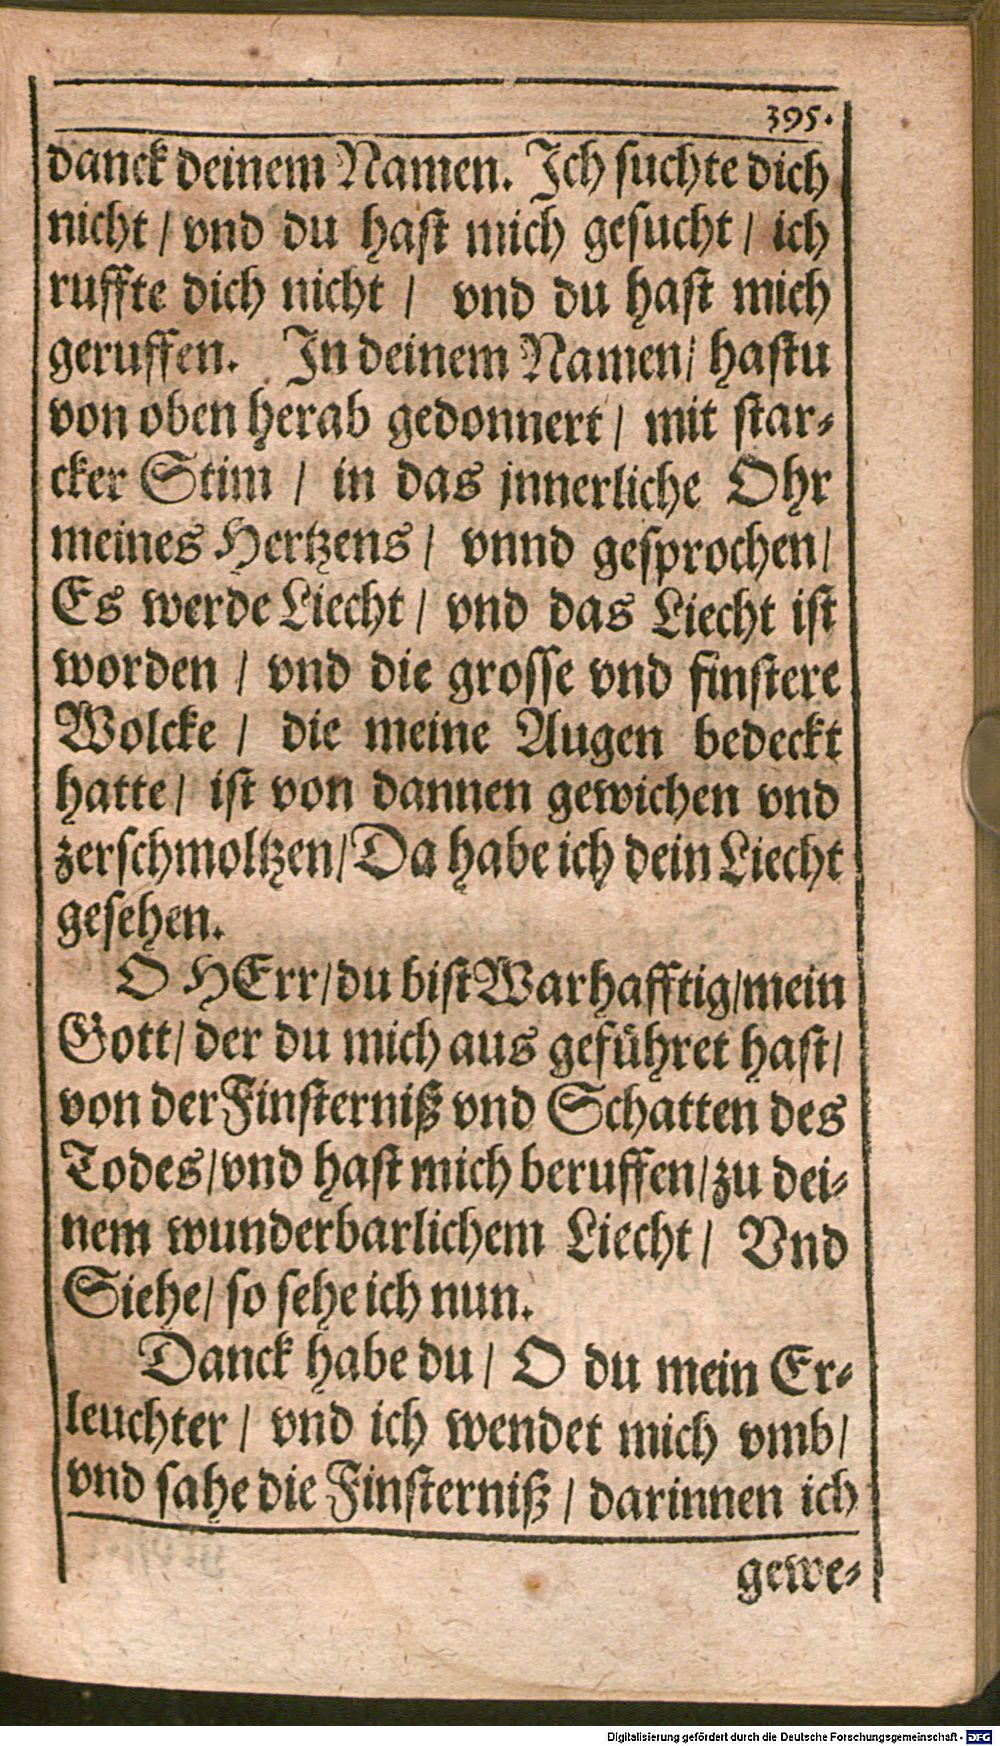 395.
danck deinem Namen. Ich suchte dich
nicht / vnd du hast mich gesucht / ich
ruffte dich nicht / vnd du hast mich
geruffen. In deinem Namen / hastu
von oben herab gedonnert / mit star-
cker Stim / in das jnnerliche Ohr
meines Hertzens / vnnd gesprochen /
Es werde Liecht / vnd das Liecht ist
worden / vnd die grosse vnd finstere
Wolcke / die meine Augen bedeckt
hatte / ist von dannen gewichen vnd
zerschmoltzen / Da habe ich dein Liecht
gesehen.
O HErr / du bist Warhafftig / mein
Gott / der du mich aus geführet hast /
von der Finsterniß vnd Schatten des
Todes / vnd hast mich beruffen / zu dei-
nem wunderbarlichem Liecht / Vnd
Siehe / so sehe ich nun.
Danck habe du / O du mein Er-
leuchter / vnd ich wendet mich vmb /
vnd sahe die Finsterniß / darinnen ich
gewe-
Digitalisierung gefördert durch die Deutsche Forschungsgemeinschaft - DFG